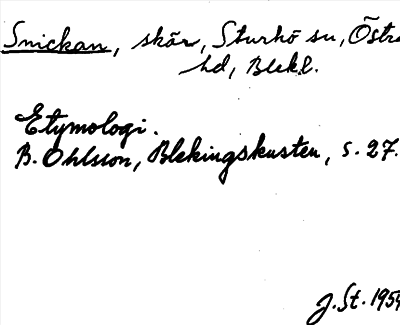 Snickan, skär, Sturkö sn, Östra
hd, Blek l.
Etymologi.
B. Ohlsson, Blekingskusten, s. 27.
J. St. 1959